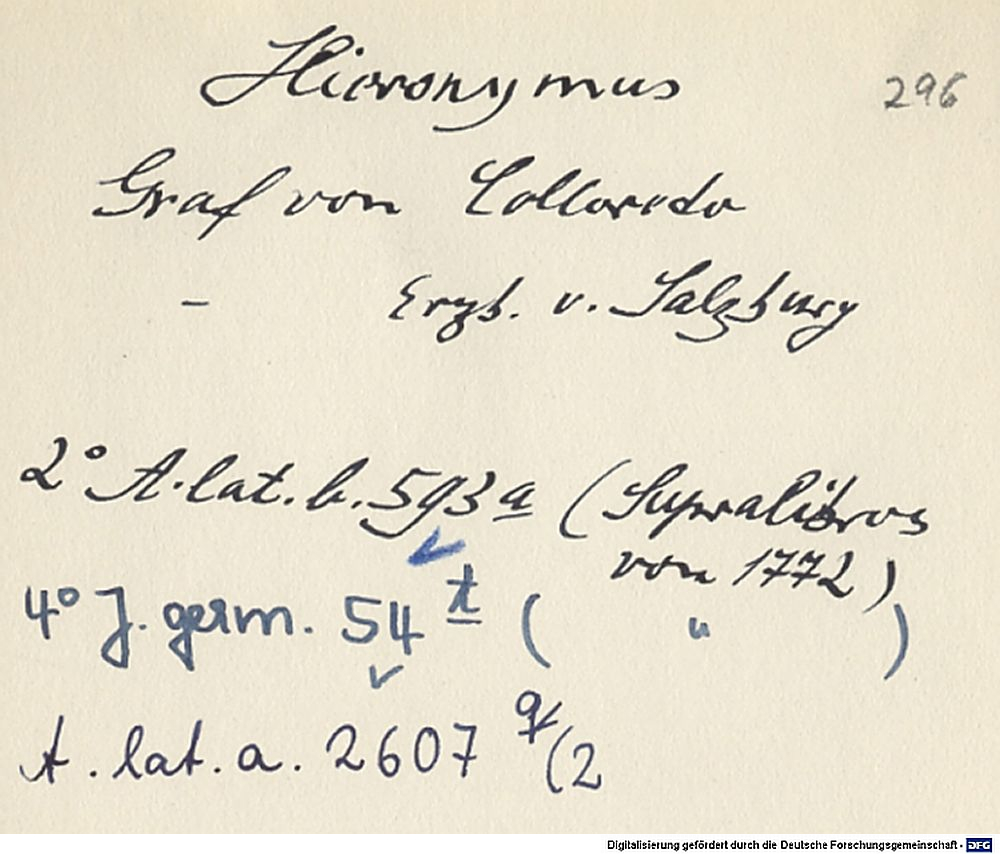 Hieronymus 296
Graf von Colloredo
– Erzb. v. Salzburg
2° A. lat. b. 593 a (Supralibros
von 1772)
4° J. germ. 54 t ( " )
A. lat. a. 2607 q/(2
Digitalisierung gefördert durch die Deutsche Forschungsgemeinschaft - DFG